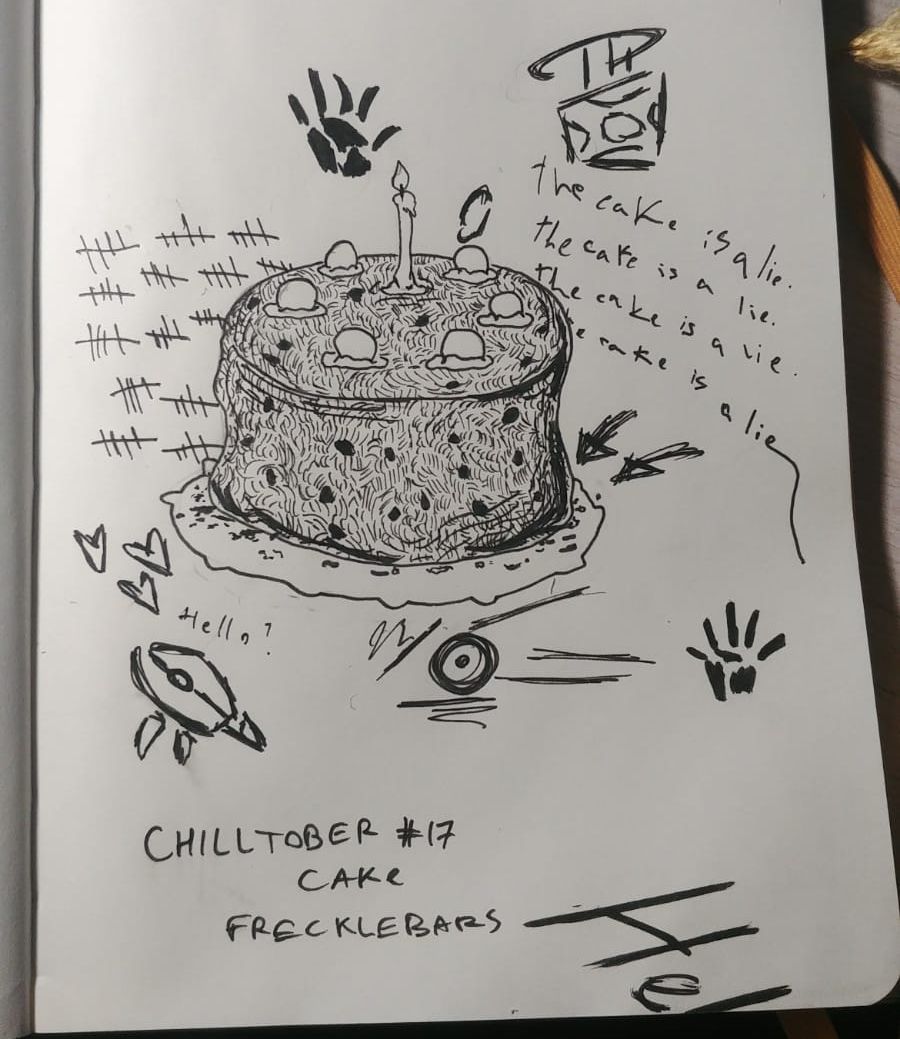 the cake is a lie.
the cake is a lie.
the cake is a lie.
e cake is a lie
Hello?
CHILLTOBER #17
CAKe
FRECKLEBARS